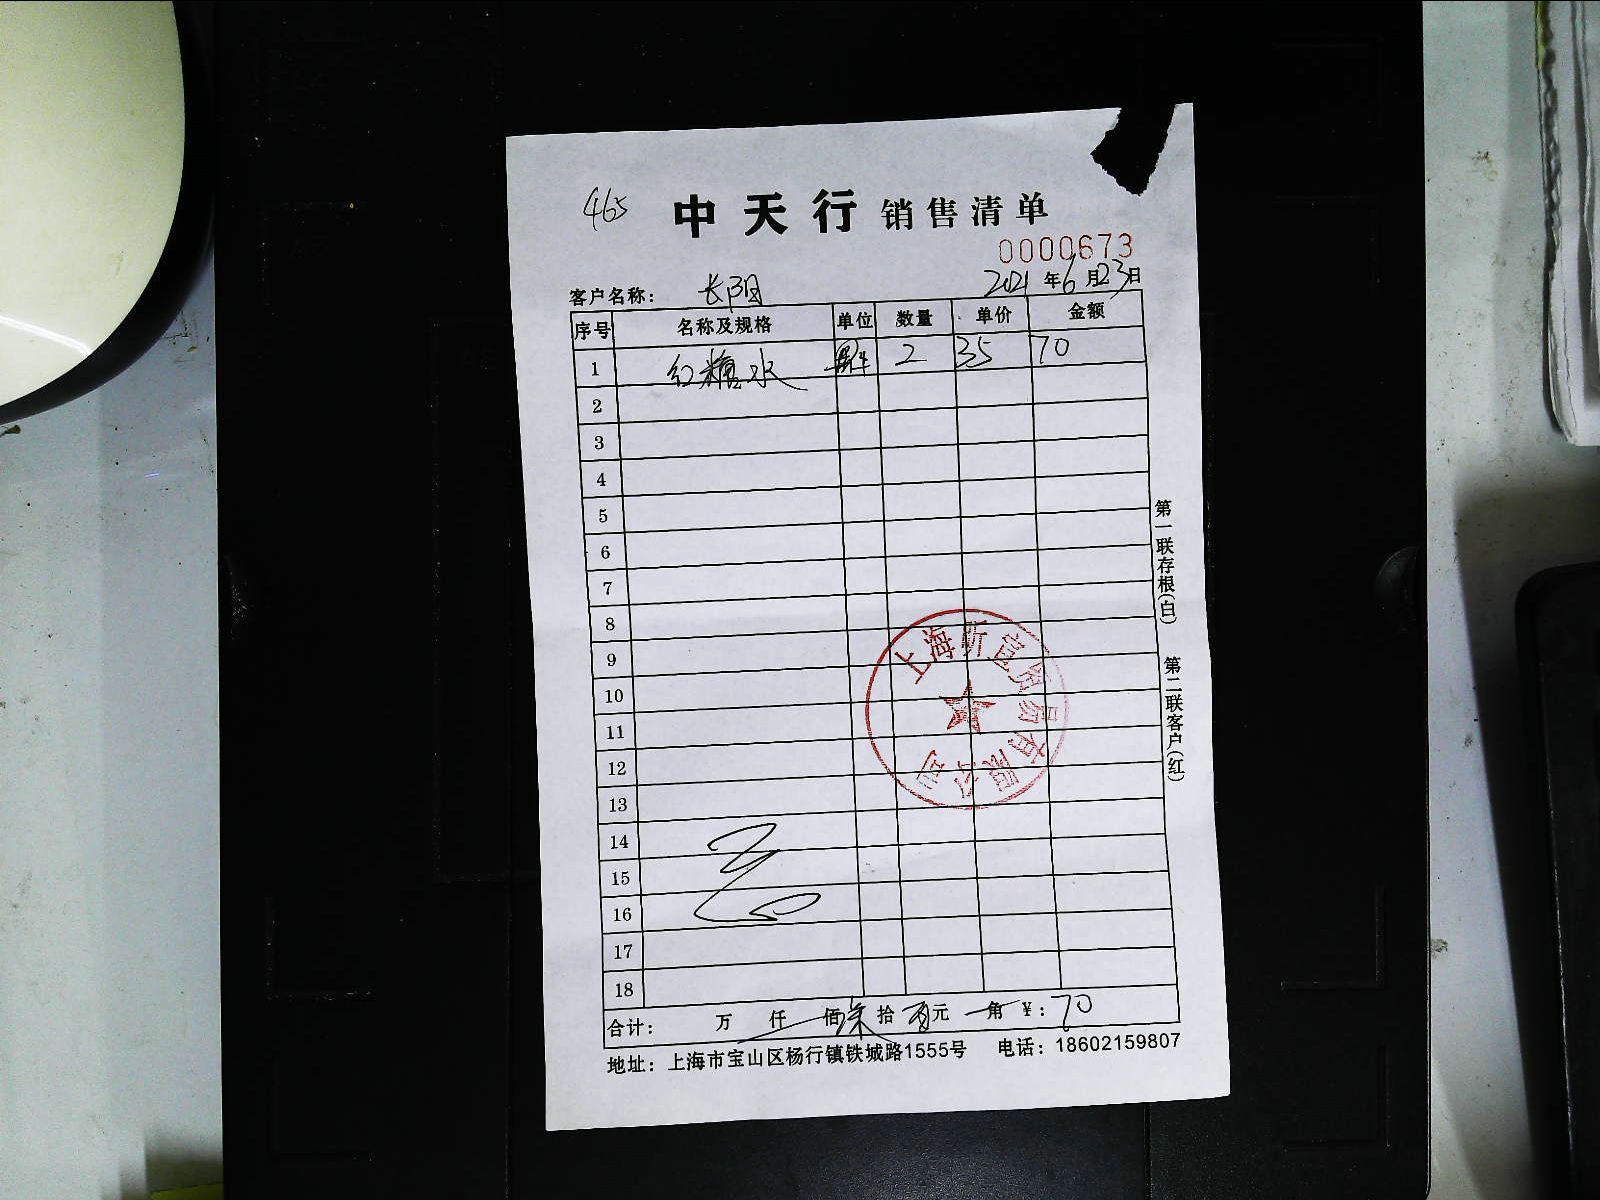 465
中天行 销售清单
0000673
客户名称： 长阳 2021年6月23日
序号 名称及规格 单位 数量 单价 金额
1 红糖水 2 35 70
2
3
4
5
6
7
8
9
10
11
12
13
14
15
16
17
18
合计： 万 仟 佰 柒 拾 元 角 ¥：70
地址：上海市宝山区杨行镇铁城路1555号 电话：18602159807
第一联存根(白) 第二联客户(红)
上海 贸有限公司